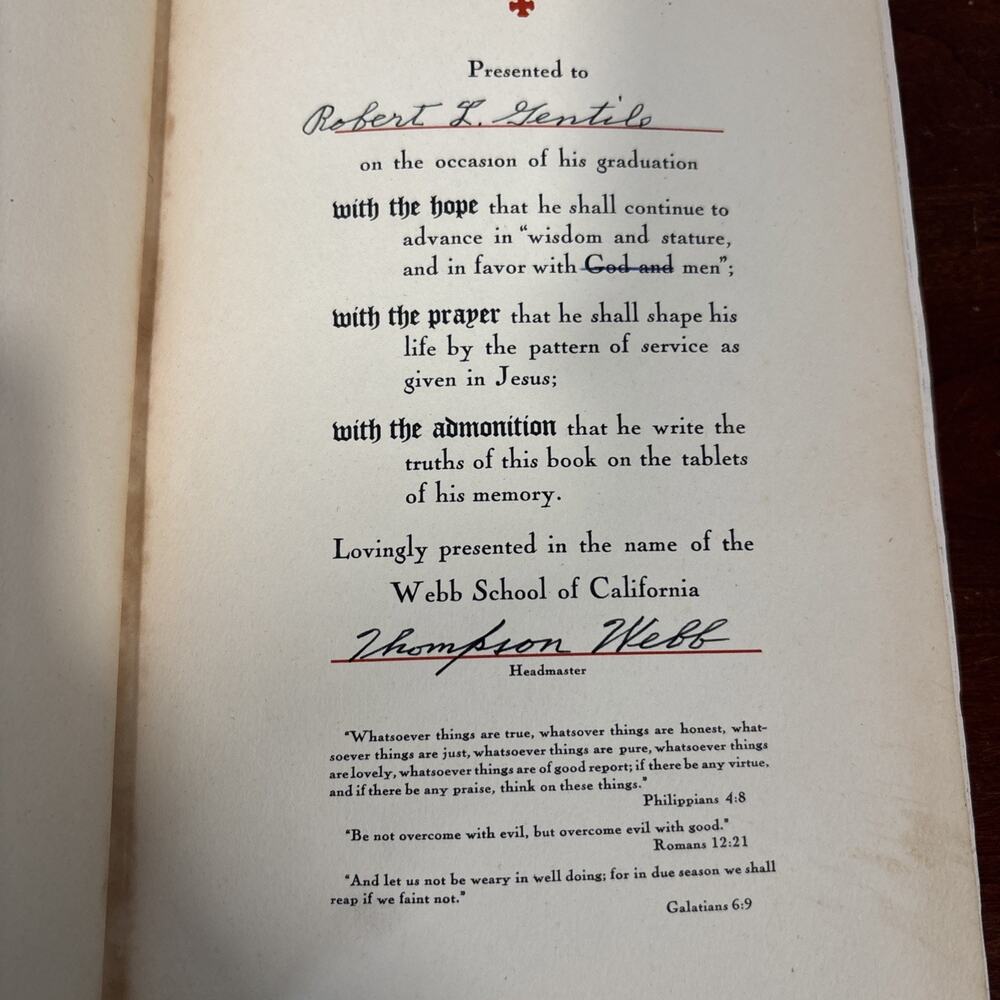 Presented to
Robert L. Gentile
on the occasion of his graduation
with the hope that he shall continue to
advance in "wisdom and stature,
and in favor with God and men";
with the prayer that he shall shape his
life by the pattern of service as
given in Jesus;
with the admonition that he write the
truths of this book on the tablets
of his memory.
Lovingly presented in the name of the
Webb School of California
Thompson Webb
Headmaster
"Whatsoever things are true, whatsover things are honest, what-
soever things are just, whatsoever things are pure, whatsoever things
are lovely, whatsoever things are of good report; if there be any virtue,
and if there be any praise, think on these things."
Philippians 4:8
"Be not overcome with evil, but overcome evil with good."
Romans 12:21
"And let us not be weary in well doing; for in due season we shall
reap if we faint not."
Galatians 6:9